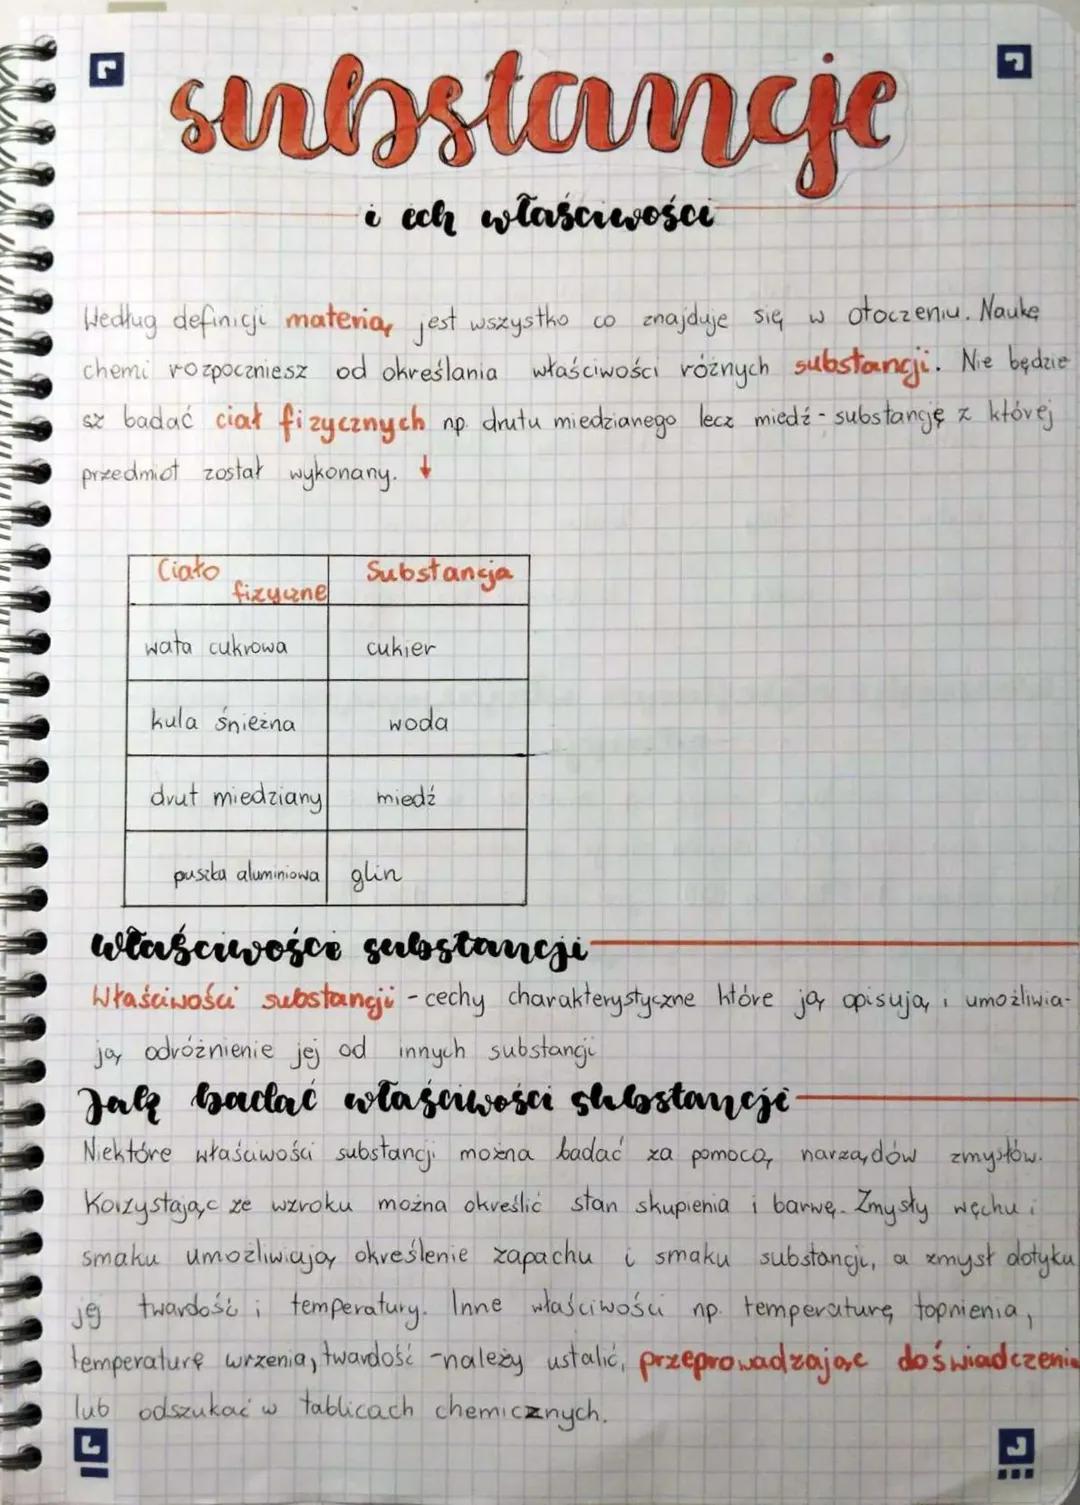 substancje
i ich właściwości
Według definicji materią jest wszystko co znajduje się w otoczeniu. Naukę
chemi rozpoczniesz od określania właściwości różnych substancji. Nie będzie
sz badać ciał fizycznych np. drutu miedzianego lecz miedź - substancję z której
przedmiot został wykonany. ↓
Ciało fizyczne Substancja
wata cukrowa cukier
kula śnieżna woda
drut miedziany miedź
puszka aluminiowa glin
właściwości substancji
Właściwości substancji - cechy charakterystyczne które ją opisują i umożliwia-
ją odróżnienie jej od innych substancji
Jak badać właściwości substancji
Niektóre właściwości substancji można badać za pomocą narządów zmysłów.
Korzystając ze wzroku można określić stan skupienia i barwę. Zmysły węchu i
smaku umożliwiają określenie zapachu i smaku substancji, a zmysł dotyku
jej twardość i temperatury. Inne właściwości np. temperaturę topnienia,
temperaturę wrzenia, twardość - należy ustalić, przeprowadzając doświadczenia
lub odszukać w tablicach chemicznych.